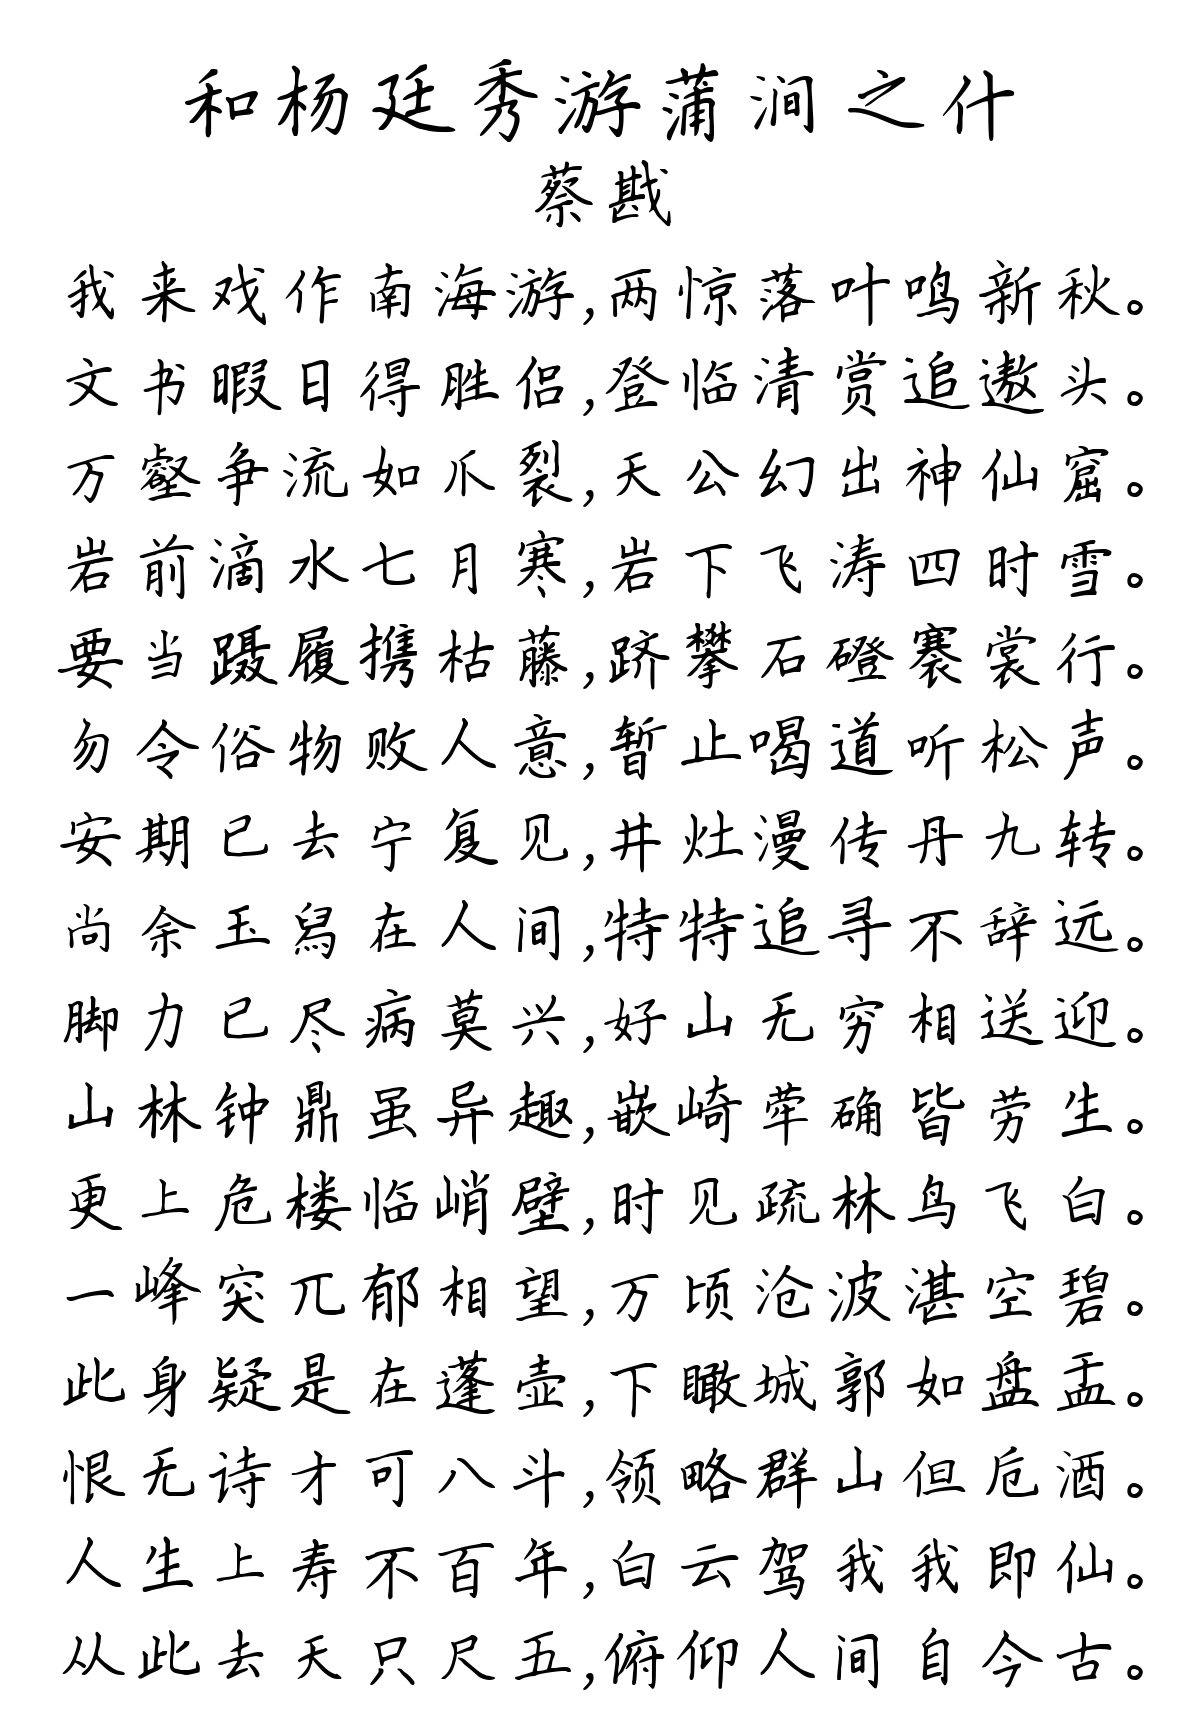 和杨廷秀游蒲涧之什
蔡戡
我来戏作南海游,两惊落叶鸣新秋。
文书暇日得胜侣,登临清赏追遨头。
万壑争流如爪裂,天公幻出神仙窟。
岩前滴水七月寒,岩下飞涛四时雪。
要当蹑履携枯藤,跻攀石磴褰裳行。
勿令俗物败人意,暂止喝道听松声。
安期已去宁复见,井灶漫传丹九转。
尚余玉舄在人间,特特追寻不辞远。
脚力已尽病莫兴,好山无穷相送迎。
山林钟鼎虽异趣,嵌崎荦确皆劳生。
更上危楼临峭壁,时见疏林鸟飞白。
一峰突兀郁相望,万顷沧波湛空碧。
此身疑是在蓬壶,下瞰城郭如盘盂。
恨无诗才可八斗,领略群山但卮酒。
人生上寿不百年,白云驾我我即仙。
从此去天只尺五,俯仰人间自今古。